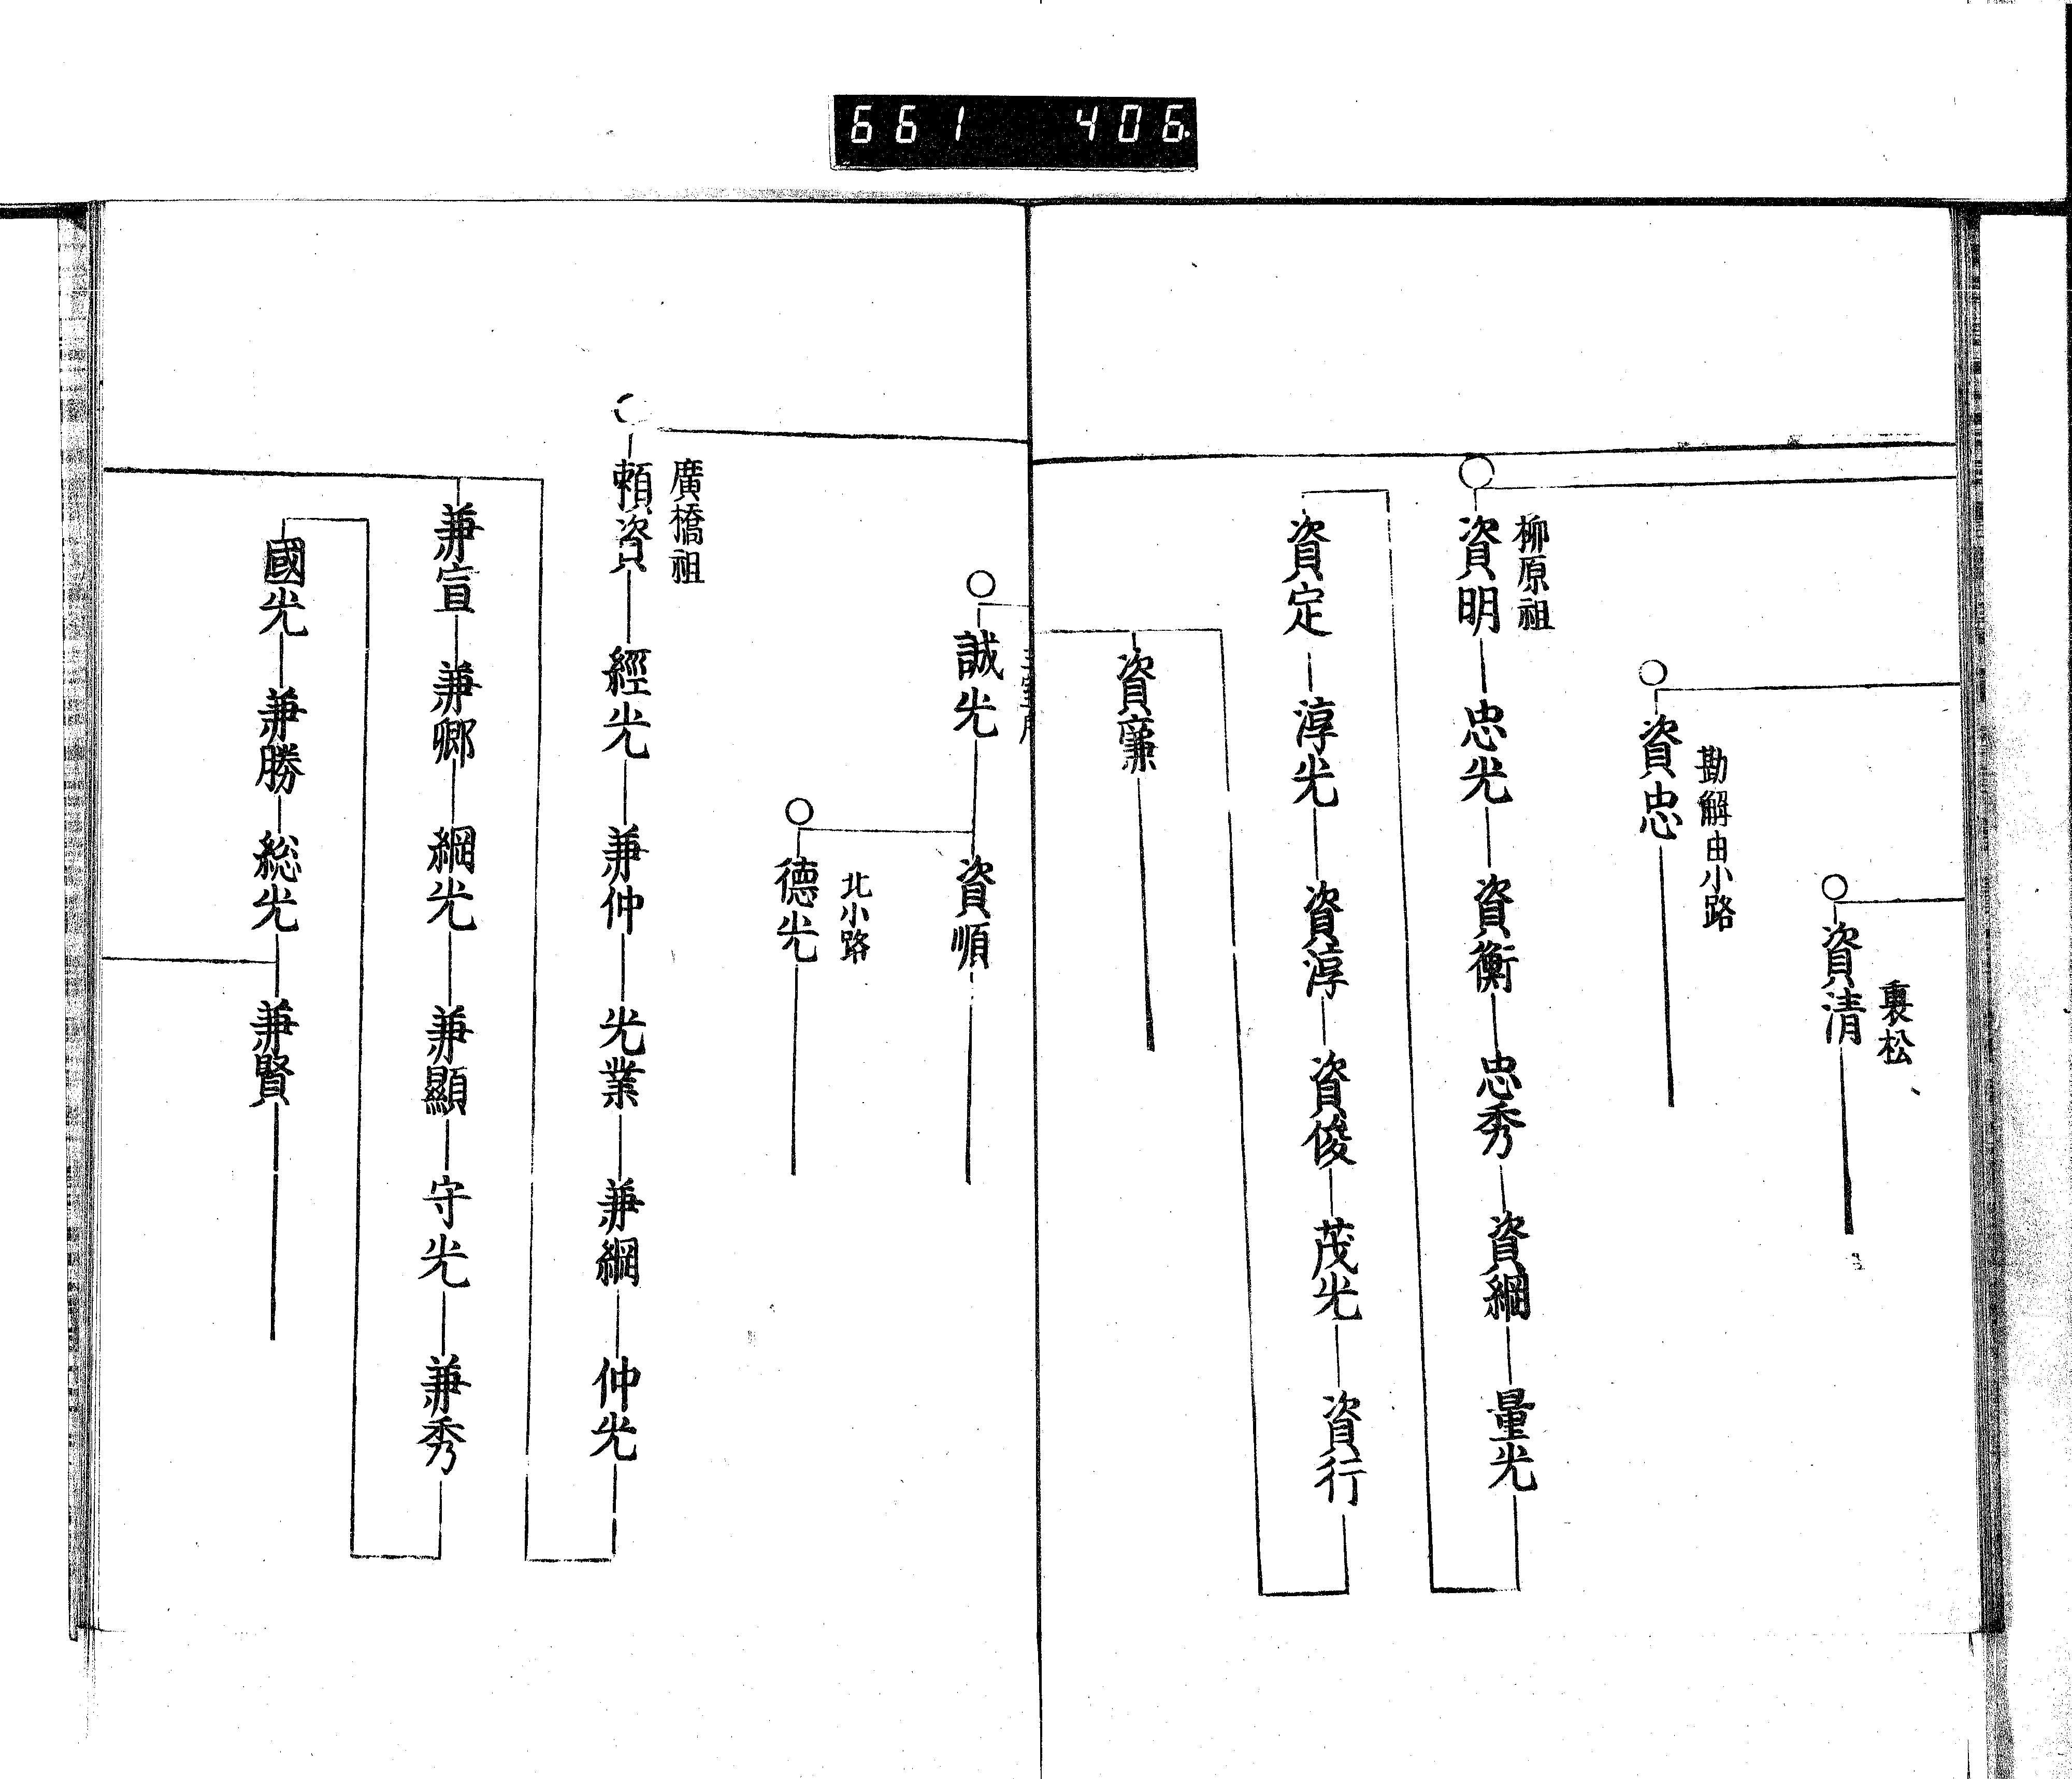 661 406.
裏松
資清
勘解由小路
資忠
柳原祖
資明 忠光 資衡 忠秀 資綱 量光
資定 淳光 資淳 資俊 茂光 資行
資廉
誠光 資順
北小路
德光
廣橋祖
頼資 經光 兼仲 光業 兼綱 仲光
兼宣 兼郷 綱光 兼顯 守光 兼秀
國光 兼勝 総光 兼賢